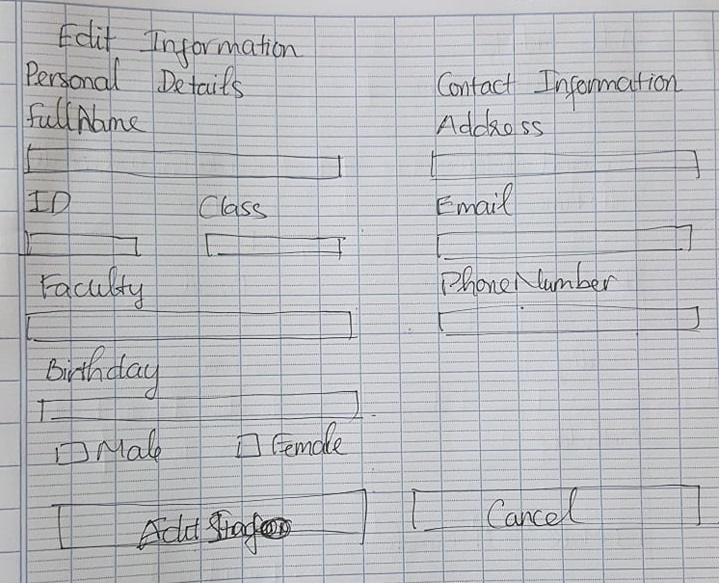 Edit Information
Personal Details
Full Name
ID Class
Faculty
Birthday
Male Female
Contact Information
Address
Email
Phone Number
Add
Cancel